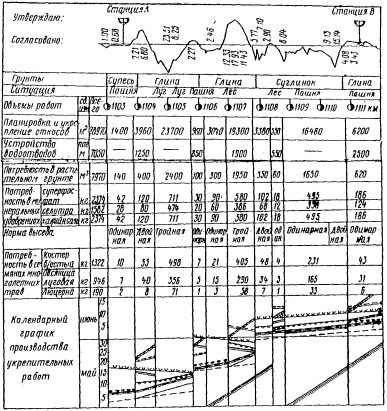 Утверждаю:
Согласовано:
Станция А
Станция В
1.00
0.68
2.27
6.80
23.51
8.25
2.27
2.46
12.33
17.93
11.43
3.77
2.90
8.04
9.13
15.14
4.08
3.43
Грунты Супесь Глина Глина Суглинок Глина
Ситуация Пашня Луг Луг Пашня Лес Лес Пашня Пашня
Объемы работ ед. изм. Всего 1103 1104 1105 1106 1107 1108 1109 1110 1111 км
Планировка и укрепление откосов м² 70970 1400 3960 23700 960 3040 19300 3380 550 16480 6200
Устройство водоотводов пог м 7050 1250 850 1900 550 2500
Потребность в растительном грунте м³ 7970 140 400 2400 100 300 1950 350 60 1650 620
Потребность в минеральных удобрениях
суперфосфат кг 2374 42 120 711 30 90 580 102 18 495 186
селитра 1582 28 80 474 20 60 386 68 12 330 124
2374 42 120 711 30 90 580 102 18 495 186
Норма высева Одинарная Двойная Тройная Одинарн Двойная Тройная Двойная Одинарная Двойная Одинарная
Потребность в семенах многолетних трав
Костер безостый кг 1322 10 33 490 7 21 405 48 4 231 43
Овсяница луговая кг 946 7 40 356 5 15 290 34 3 165 31
Люцерна кг 190 2 8 71 1 3 58 7 1 33 6
Календарный график производства укрепительных работ
июнь
15
10
5
май
30
25
20
15
10
5